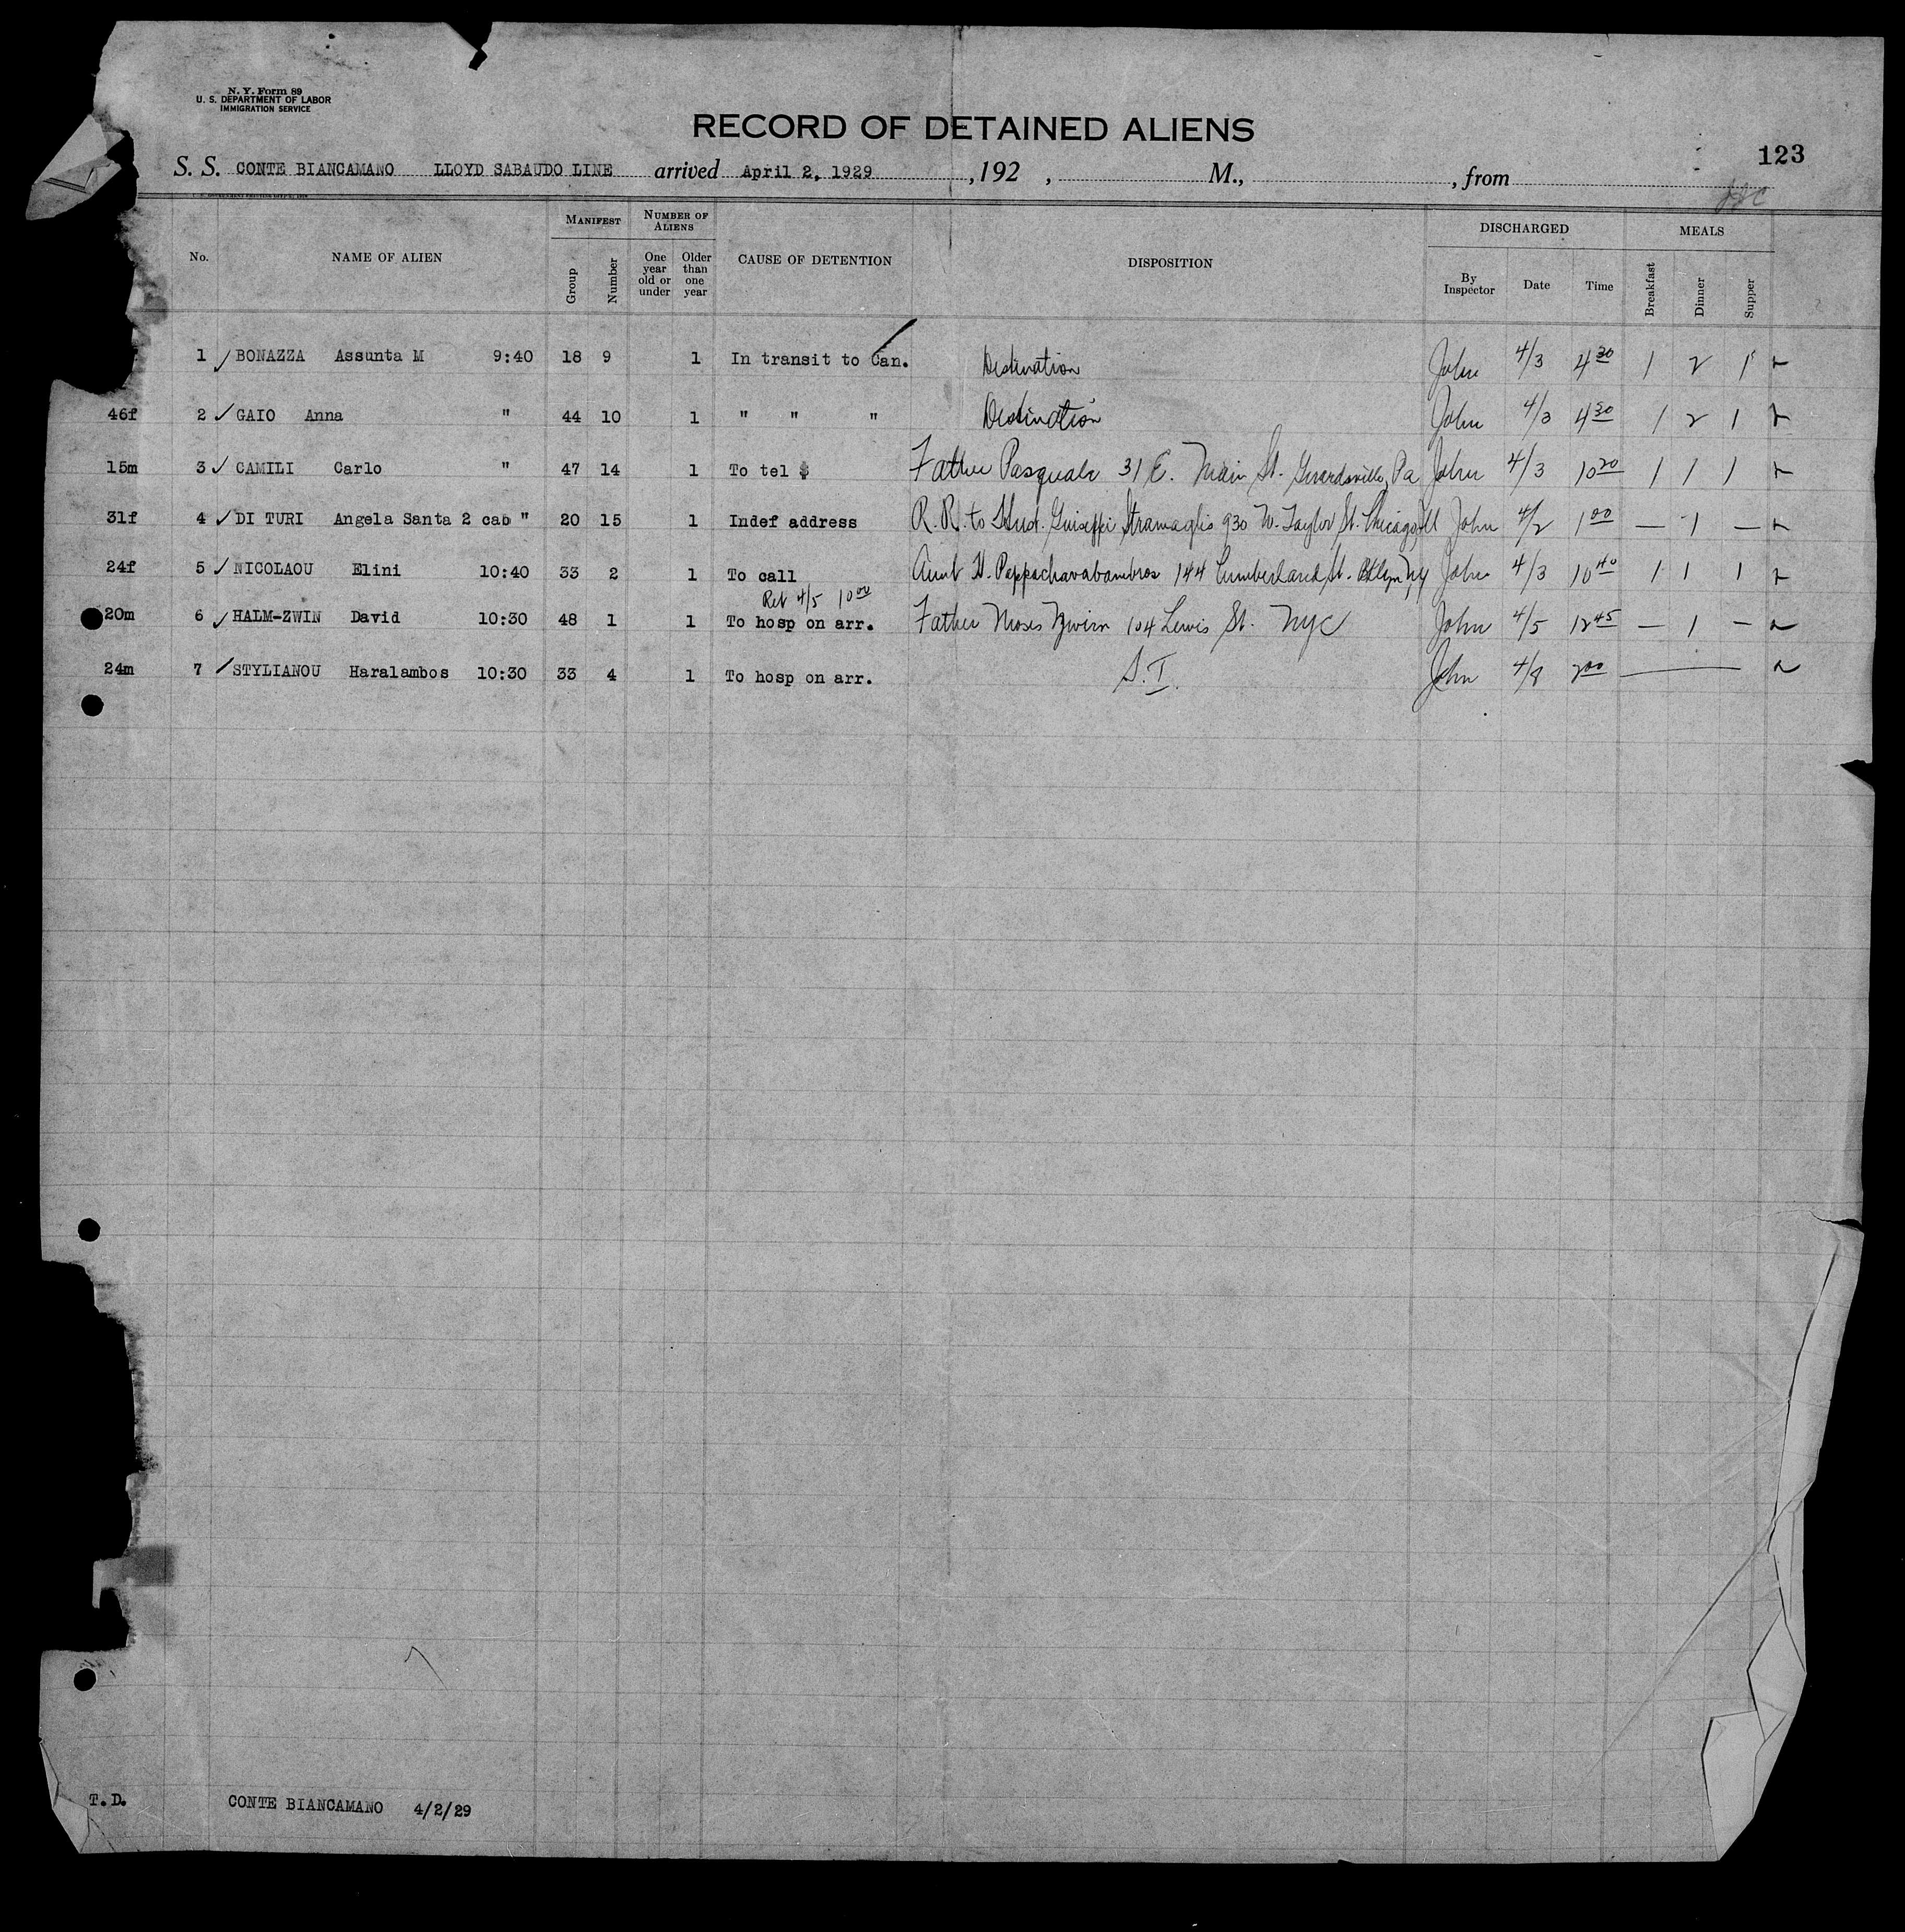 N. Y. Form 89
U. S. DEPARTMENT OF LABOR
IMMIGRATION SERVICE
RECORD OF DETAINED ALIENS
123
S. S. CONTE BIANCAMANO LLOYD SABAUDO LINE arrived April 2, 1929 , 192 , M., , from
No. NAME OF ALIEN MANIFEST Group Number NUMBER OF ALIENS One year old or under Older than one year CAUSE OF DETENTION DISPOSITION DISCHARGED By Inspector Date Time MEALS Breakfast Dinner Supper
1 BONAZZA Assunta M 9:40 18 9 1 In transit to Can. Destination John 4/3 4 30 1 2 1
46f 2 GAIO Anna " 44 10 1 " " " Destination John 4/3 4 30 1 2 1
15m 3 CAMILI Carlo " 47 14 1 To tel $ Father Pasquale 31 E. Main St. Girardsville, Pa John 4/3 10 20 1 1 1
31f 4 DI TURI Angela Santa 2 cab " 20 15 1 Indef address R. R. to Husd. Guiseppi Stramaglis 930 W. Taylor St. Chicago Ill John 4/2 1 00 — 1 —
24f 5 NICOLAOU Elini 10:40 33 2 1 To call Aunt H. 144 Cumberland St. Bklyn NY John 4/3 10 40 1 1 1
Ret 4/5 10 00
20m 6 HALM-ZWIN David 10:30 48 1 1 To hosp on arr. Father Moses Zwirn 104 Lewis St. NYC John 4/5 12 45 — 1 —
24m 7 STYLIANOU Haralambos 10:30 33 4 1 To hosp on arr. S. I. John 4/8 2 00 —
T. D. CONTE BIANCAMANO 4/2/29